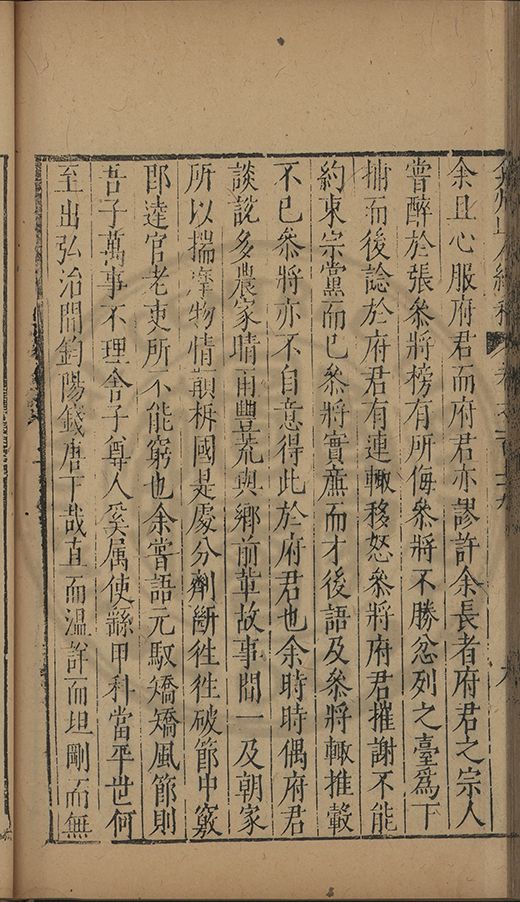 弇州山人續稿 卷之一百一十九
余且心服府君而府君亦謬許余長者府君之宗人
嘗醉於張叅將榜有所侮叅將不勝忿列之臺爲下
捕而後諗於府君有連輙移怒叅將府君摧謝不能
約束宗黨而已叅將實廉而才後語及叅將輙推轂
不已叅將亦不自意得此於府君也余時時偶府君
談說多農家晴雨豐荒與鄉前輩故事間一及朝家
所以揣摩物情顛柝國是處分劑斷徃徃破節中窾
卽達官老吏所不能窮也余嘗語元馭矯矯風節則
吾子萬事不理舍子尊人奚属使繇甲科當平世何
至出弘治間鈞陽錢唐下哉直而溫訐而坦剛而無